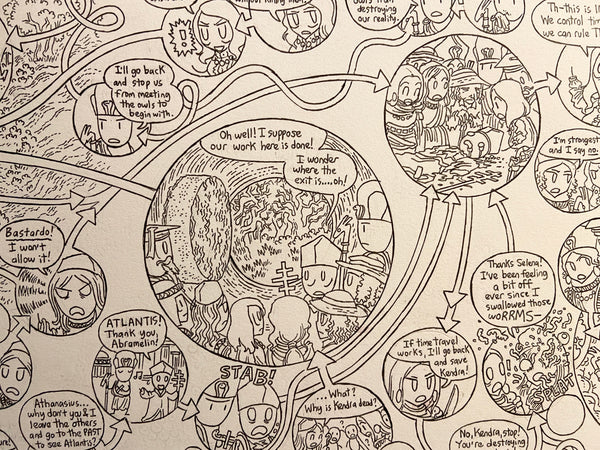 without killing him.
owls from
destroying
our reality.
Th-this is
We control time
we can rule
I'll go back
and stop us
from meeting
the owls to
begin with.
Oh well! I suppose
our work here is done!
I wonder
where the
exit is....oh!
I'm strongest
and I say no.
Bastardo!
I won't
allow it!
Thanks Selena!
I've been feeling
a bit off
ever since I
swallowed those
woRRMS—
ATLANTIS!
Thank you,
Abramelin!
If time travel
works, I'll go back
and save
Kendra!
STAB!
...What?
Why is Kendra dead?
Athanasius...
why don't you & I
leave the others
and go to the PAST
to see Atlantis?
No, Kendra, stop!
You're destroying